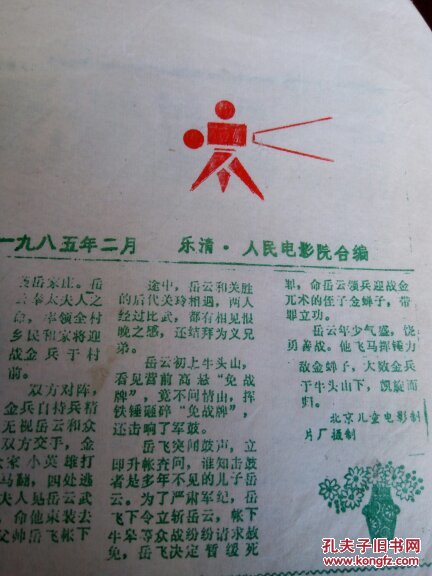 一九八五年二月 乐清·人民电影院合编
岳家庄。岳
云奉太夫人之
命，率领全村
乡民和家将迎
战金兵于村
前。
双方对阵，
金兵自恃兵精
无视岳云和众
双方交手，金
家小英雄打
马翻，四处逃
夫人见岳云武
，命他束装去
父帅岳飞帐下
途中，岳云和关胜
的后代关玲相遇，两人
经过比武，都有相见恨
晚之感，还结拜为义兄
弟。
岳云初上牛头山，
看见营前高悬“免战
牌”，竟不问情由，挥
铁锤砸碎“免战牌”，
还击响了军鼓。
岳飞突闻鼓声，立
即升帐查问，谁知击鼓
者是多年不见的儿子岳
云。为了严肃军纪，岳
飞下令立斩岳云，帐下
牛皋等众战纷纷请求赦
免，岳飞决定暂缓死
罪，命岳云领兵迎战金
兀术的侄子金蝉子，带
罪立功。
岳云年少气盛，饶
勇善战。他飞马挥锤力
敌金蝉子，大败金兵
于牛头山下，凯旋而
归。
北京儿童电影制
片厂摄制
孔夫子旧书网
www.kongfz.com
孔夫子旧书网
www.kongfz.com